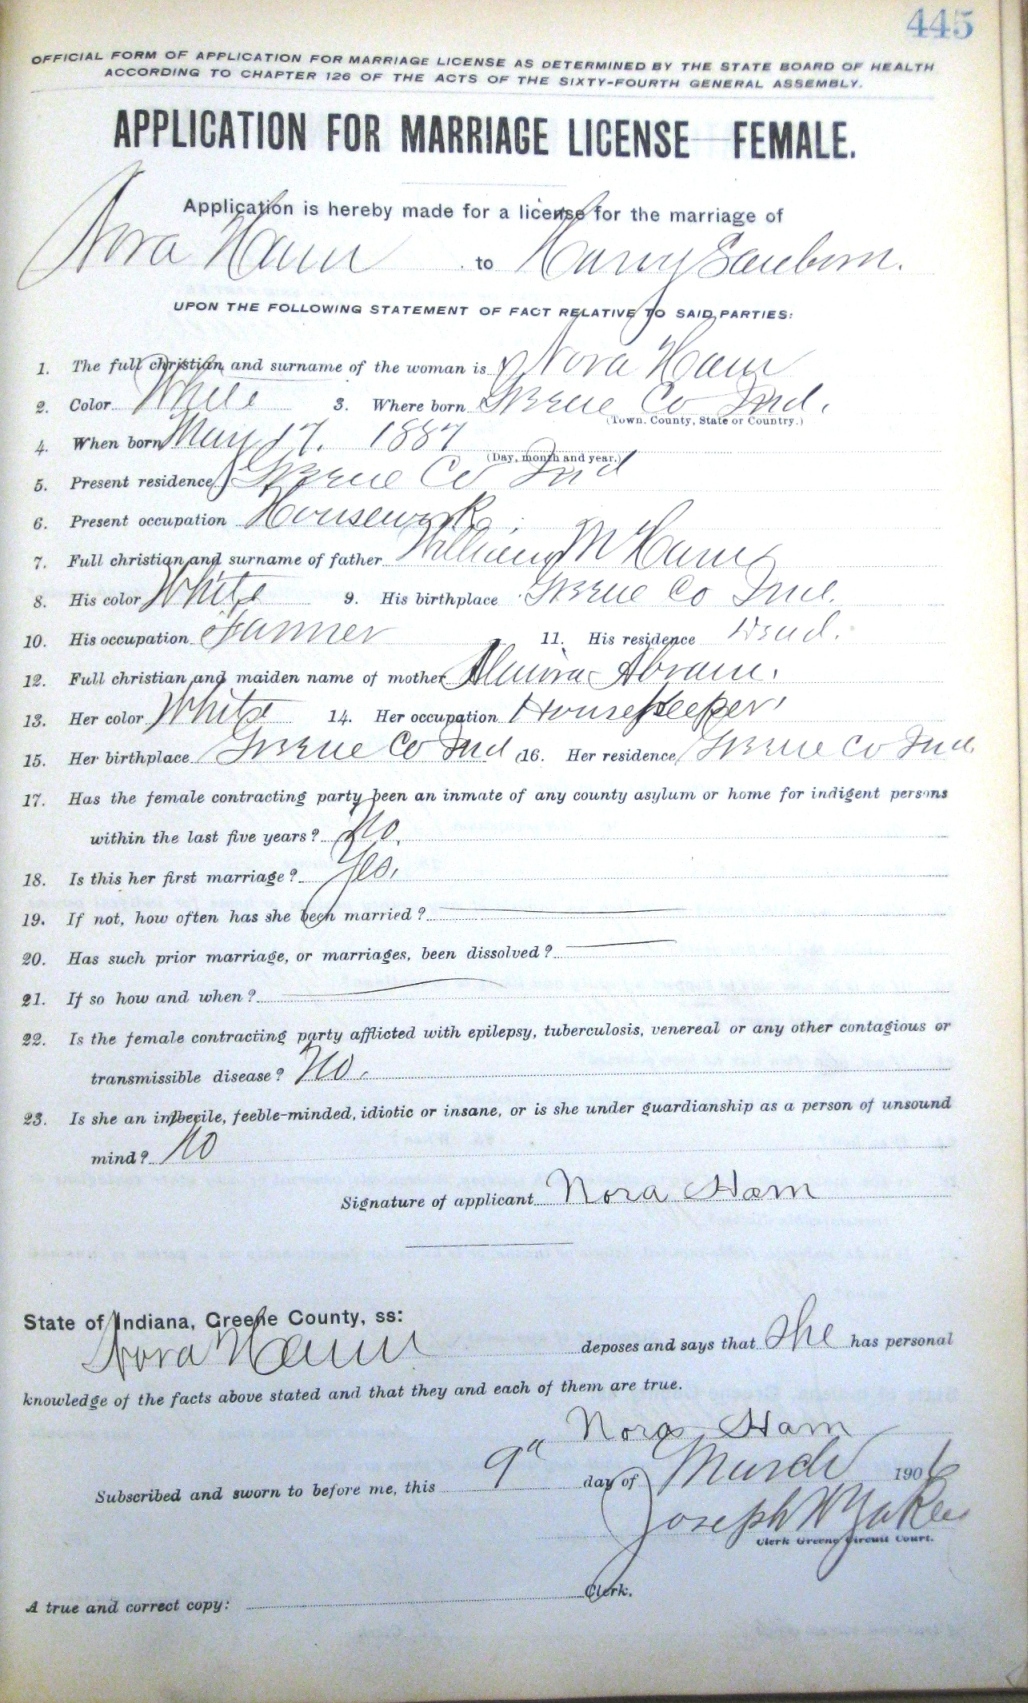 445
OFFICIAL FORM OF APPLICATION FOR MARRIAGE LICENSE AS DETERMINED BY THE STATE BOARD OF HEALTH
ACCORDING TO CHAPTER 126 OF THE ACTS OF THE SIXTY-FOURTH GENERAL ASSEMBLY.
APPLICATION FOR MARRIAGE LICENSE—FEMALE.
Application is hereby made for a license for the marriage of
Nora Ham to Harvy Sanborn.
UPON THE FOLLOWING STATEMENT OF FACT RELATIVE TO SAID PARTIES:
1. The full christian and surname of the woman is Nora Ham
2. Color White 3. Where born Greene Co Ind.
(Town. County, State or Country.)
4. When born May 17. 1887
(Day, month and year.)
5. Present residence Greene Co Ind
6. Present occupation Housework.
7. Full christian and surname of father William M Ham
8. His color White 9. His birthplace Greene Co Ind.
10. His occupation Farmer 11. His residence Dead.
12. Full christian and maiden name of mother Almira Abram.
13. Her color White 14. Her occupation Housekeeper
15. Her birthplace Greene Co Ind 16. Her residence Greene Co Ind.
17. Has the female contracting party been an inmate of any county asylum or home for indigent persons
within the last five years? No.
18. Is this her first marriage? Yes.
19. If not, how often has she been married?
20. Has such prior marriage, or marriages, been dissolved?
21. If so how and when?
22. Is the female contracting party afflicted with epilepsy, tuberculosis, venereal or any other contagious or
transmissible disease? No.
23. Is she an imbecile, feeble-minded, idiotic or insane, or is she under guardianship as a person of unsound
mind? No
Signature of applicant Nora Ham
State of Indiana, Greene County, ss:
Nora Ham deposes and says that She has personal
knowledge of the facts above stated and that they and each of them are true.
Nora Ham
Subscribed and sworn to before me, this 9" day of March 1906
Joseph W Yakey
Clerk Greene Circuit Court.
A true and correct copy: Clerk.